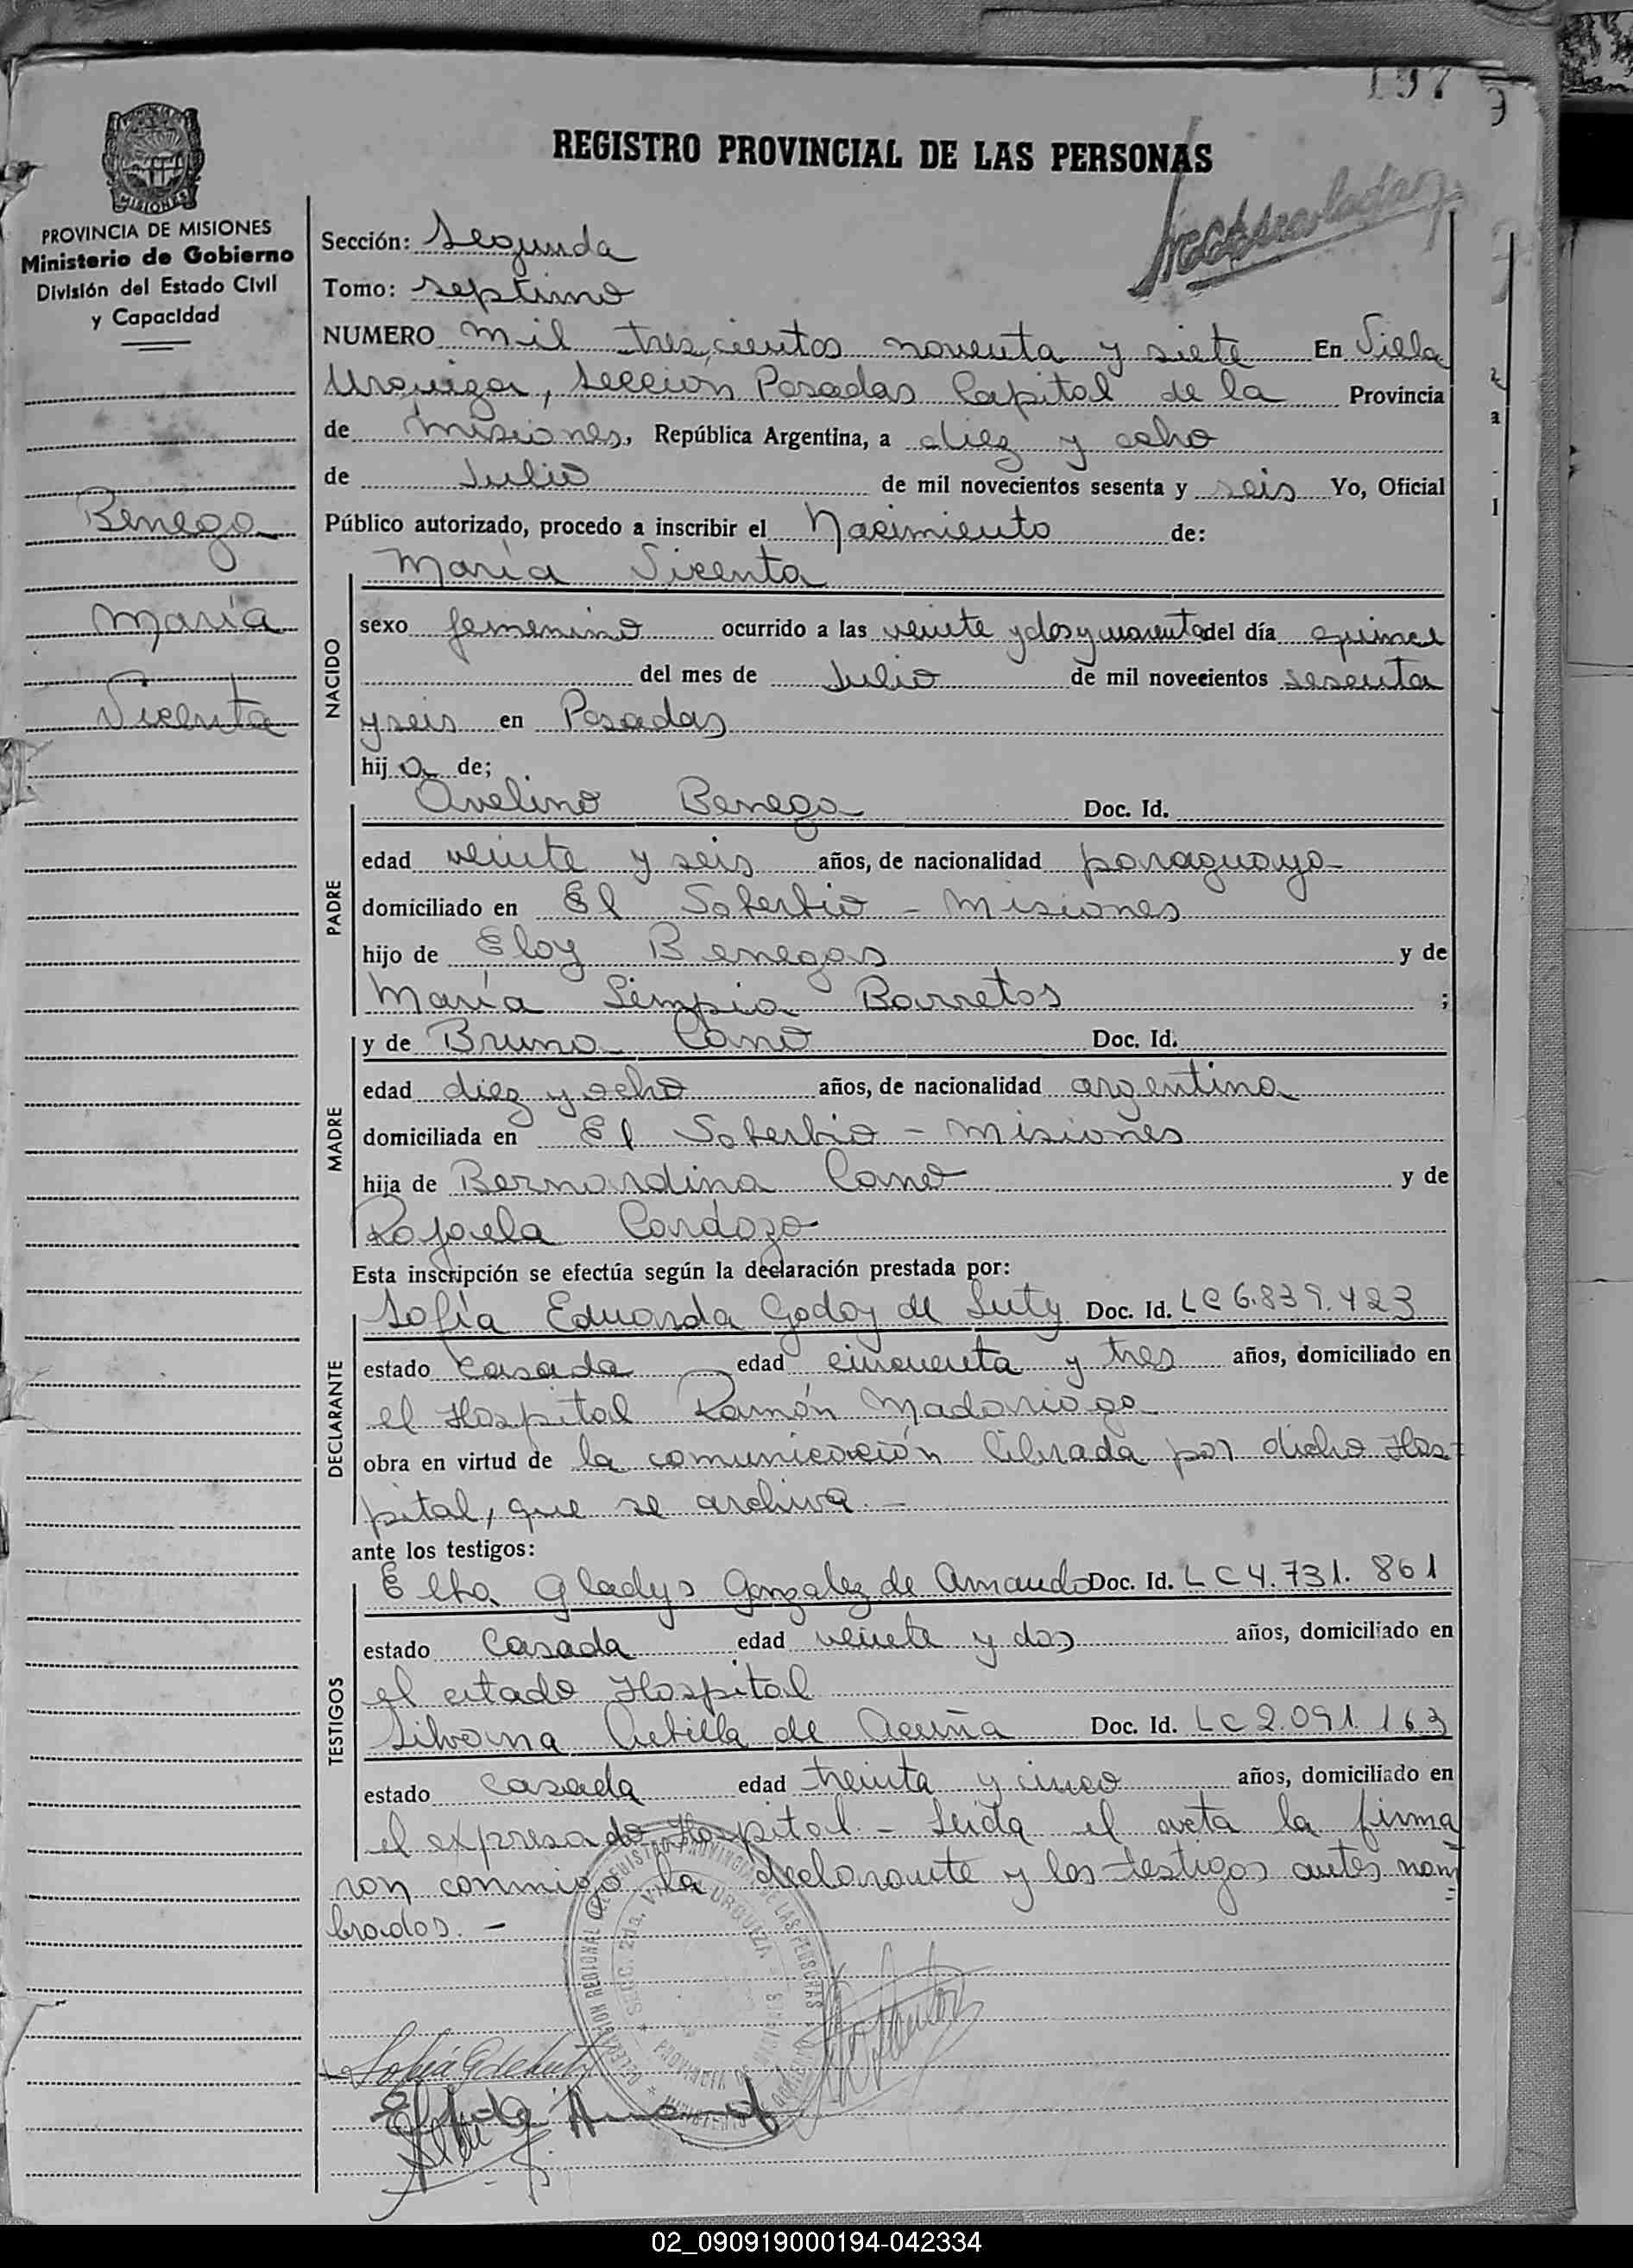 197
REGISTRO PROVINCIAL DE LAS PERSONAS
MISIONES
PROVINCIA DE MISIONES
Ministerio de Gobierno
División del Estado Civil
y Capacidad
Benega
María
Vicenta
Sección: Segunda
Tomo: septimo
NUMERO mil trescientos noventa y siete En Villa
Urquiza, sección Posadas Capital de la Provincia
de misiones, República Argentina, a diez y ocho
de Julio de mil novecientos sesenta y seis Yo, Oficial
Público autorizado, procedo a inscribir el Nacimiento de:
María Vicenta
NACIDO
sexo femenino ocurrido a las veinte y dos y cuarenta del día quince
del mes de Julio de mil novecientos sesenta
y seis en Posadas
hija de;
PADRE
Avelino Benega Doc. Id.
edad veinte y seis años, de nacionalidad paraguaya
domiciliado en El Soberbio - misiones
hijo de Eloy Benegas y de
María Limpia Barretos ;
MADRE
y de Bruna Cano Doc. Id.
edad diez y ocho años, de nacionalidad argentina
domiciliada en El Soberbio - misiones
hija de Bernardina Cano y de
Rafaela Cardozo
Esta inscripción se efectúa según la declaración prestada por:
DECLARANTE
Sofía Eduarda Godoy de Luty Doc. Id. LC 6.839.423
estado casada edad cincuenta y tres años, domiciliado en
el Hospital Ramón Madariaga
obra en virtud de la comunicación librada por dicho Hos=
pital, que se archiva. -
ante los testigos:
TESTIGOS
Elba Gladys Gonzalez de Amaudo Doc. Id. LC 4.731.861
estado casada edad veinte y dos años, domiciliado en
el citado Hospital
Silvana de Acuña Doc. Id. LC 2.091.163
estado casada edad treinta y cinco años, domiciliado en
el expresado Hospital. - Leida el acta la firma
ron conmigo la declarante y los testigos antes nom=
brados. -
DELEGACION REGIONAL DEL REGISTRO PROVINCIAL DE LAS PERSONAS
SECC. 2da. VILLA URQUIZA
PROVINCIA DE MISIONES
02_090919000194-042334